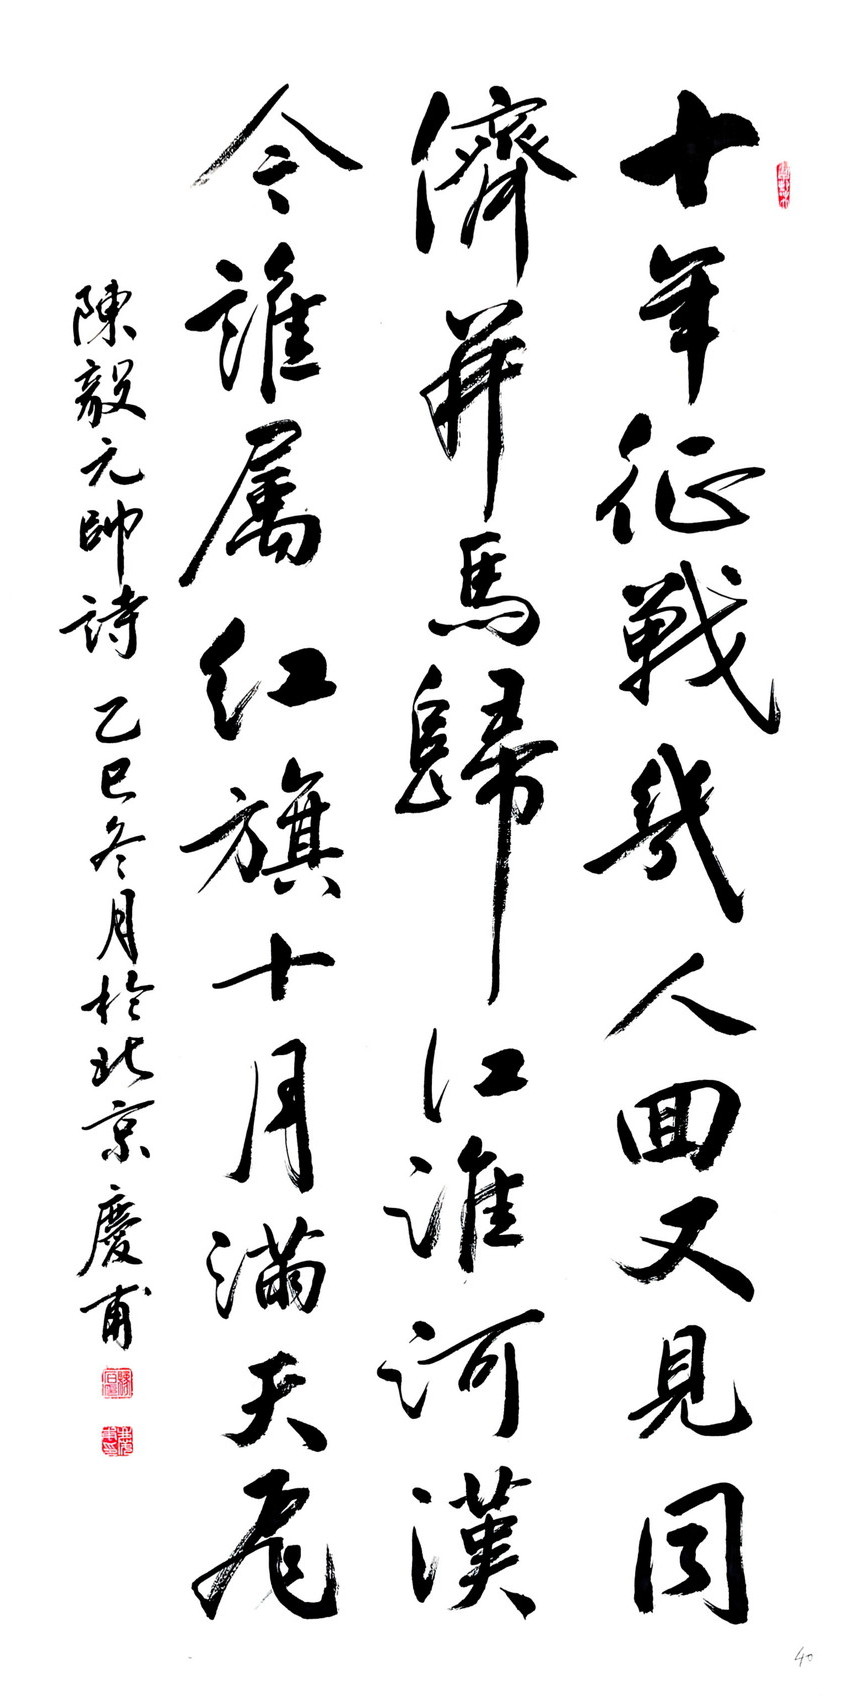 十年征戰幾人回又見同
儕并馬歸江淮河漢
今誰属红旗十月滿天飛
陳毅元帥詩 乙巳冬月於北京慶甫
40